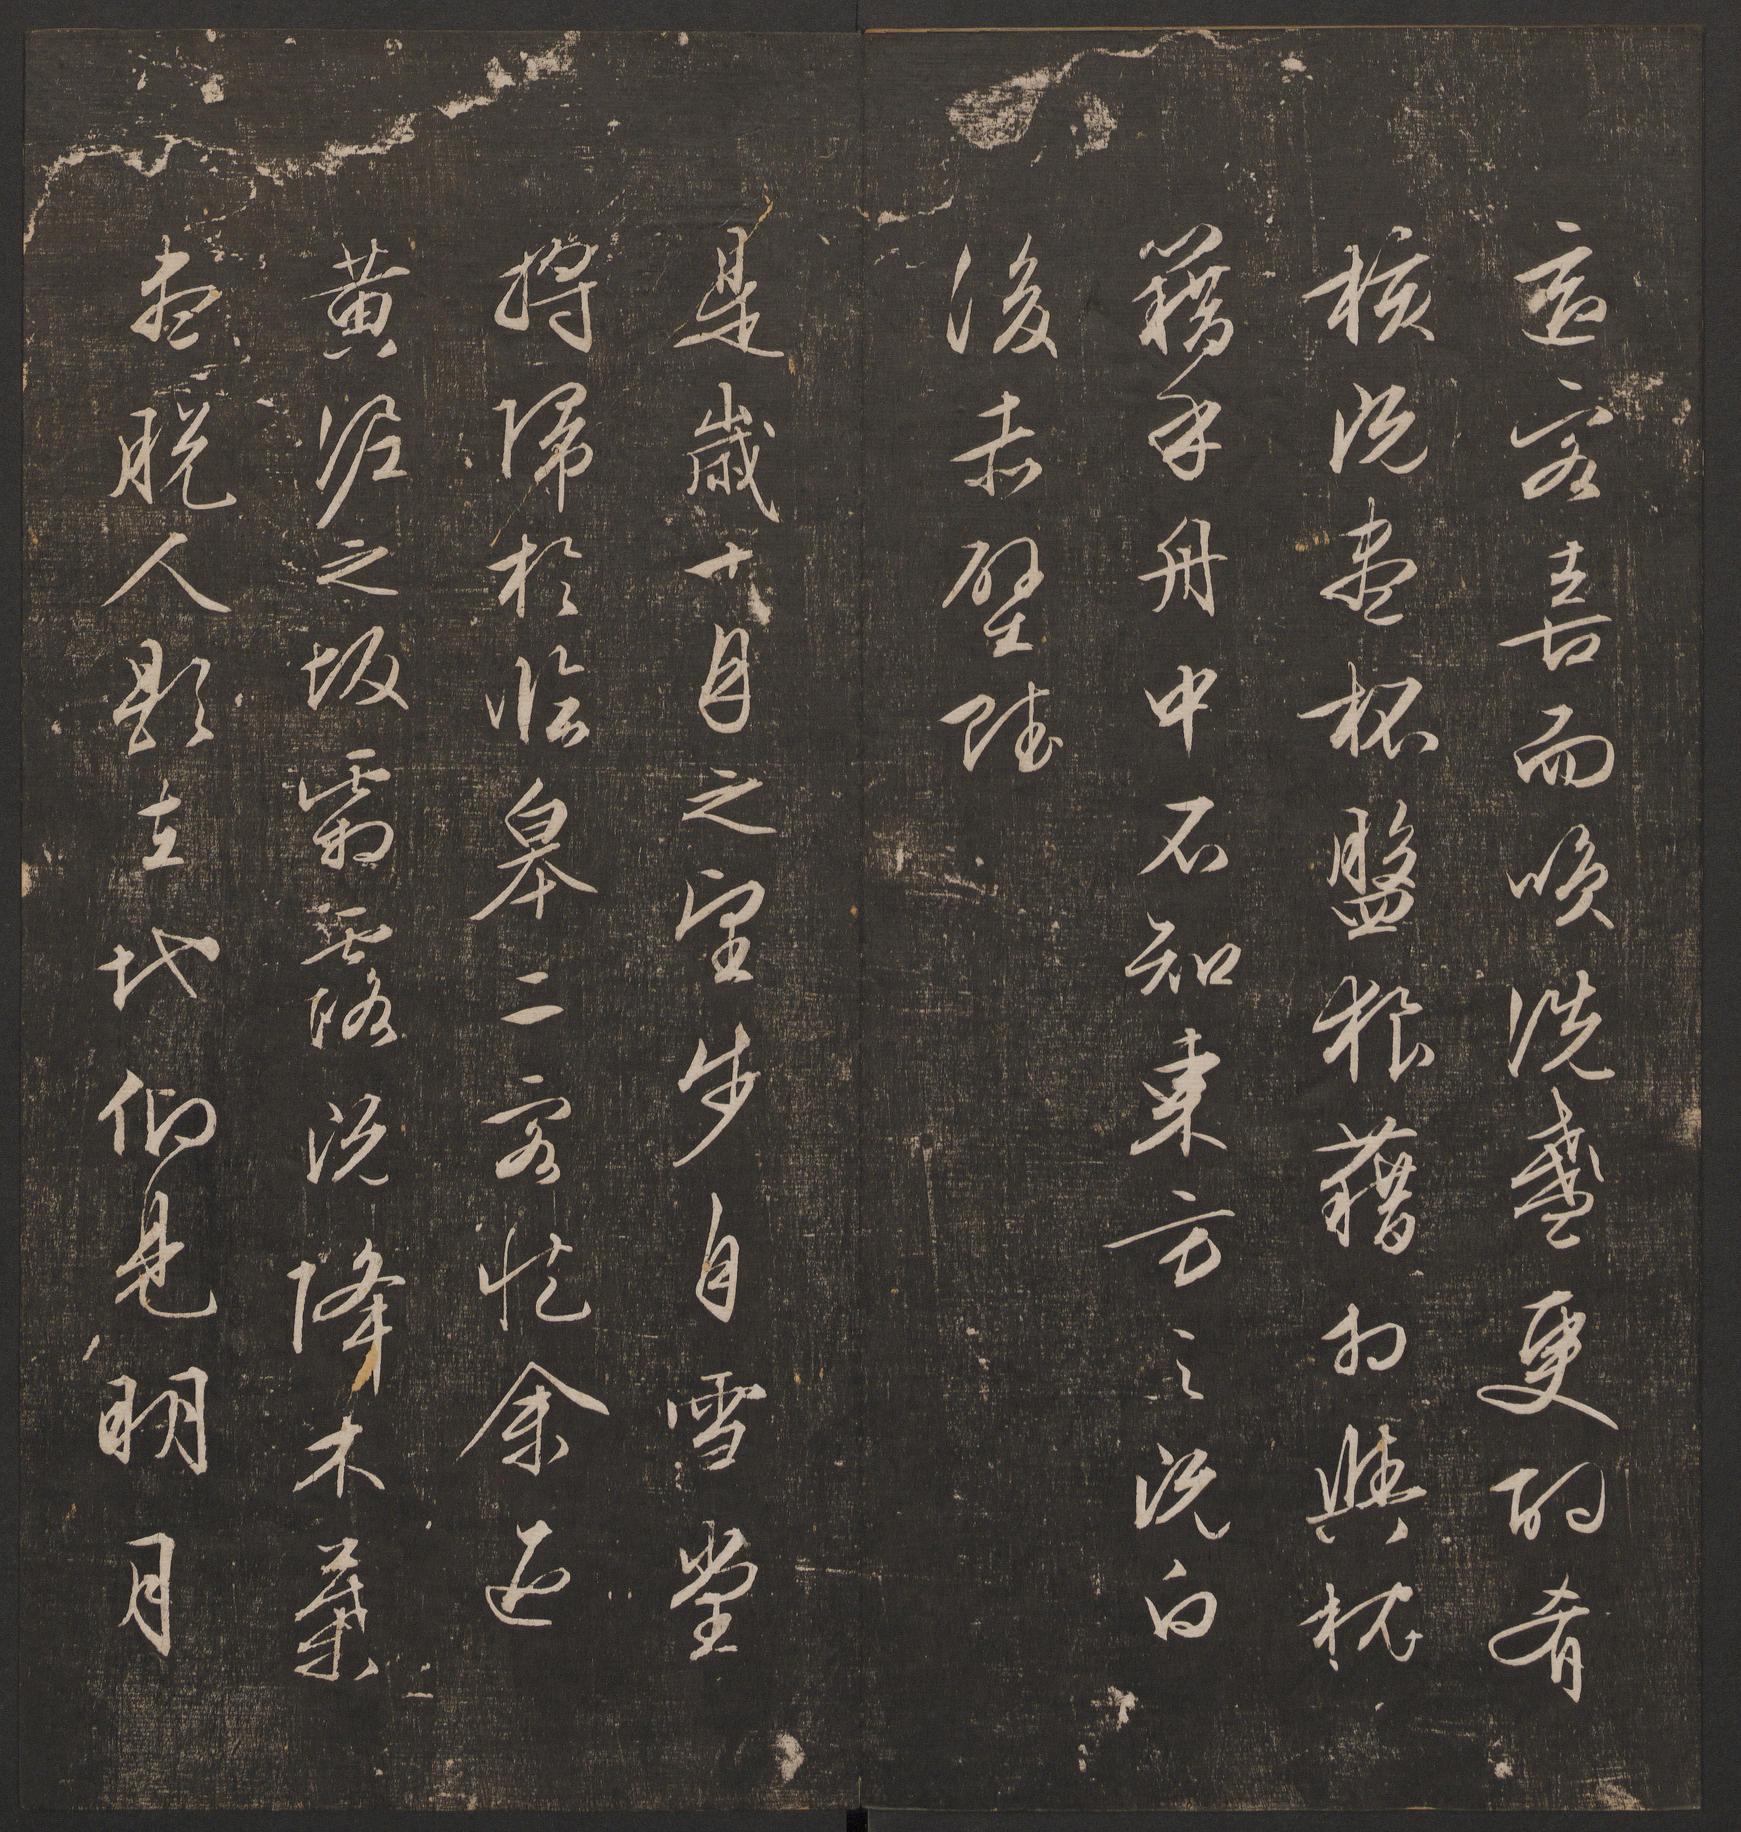 適客喜而咲洗盞更酌肴
核既盡杯盤狼藉相與枕
籍乎舟中不知東方之既白
後赤壁賦
是歲十月之望步自雪堂
將歸於臨皋二客從余過
黃泥之坂霜露既降木葉
盡脫人影在地仰見明月